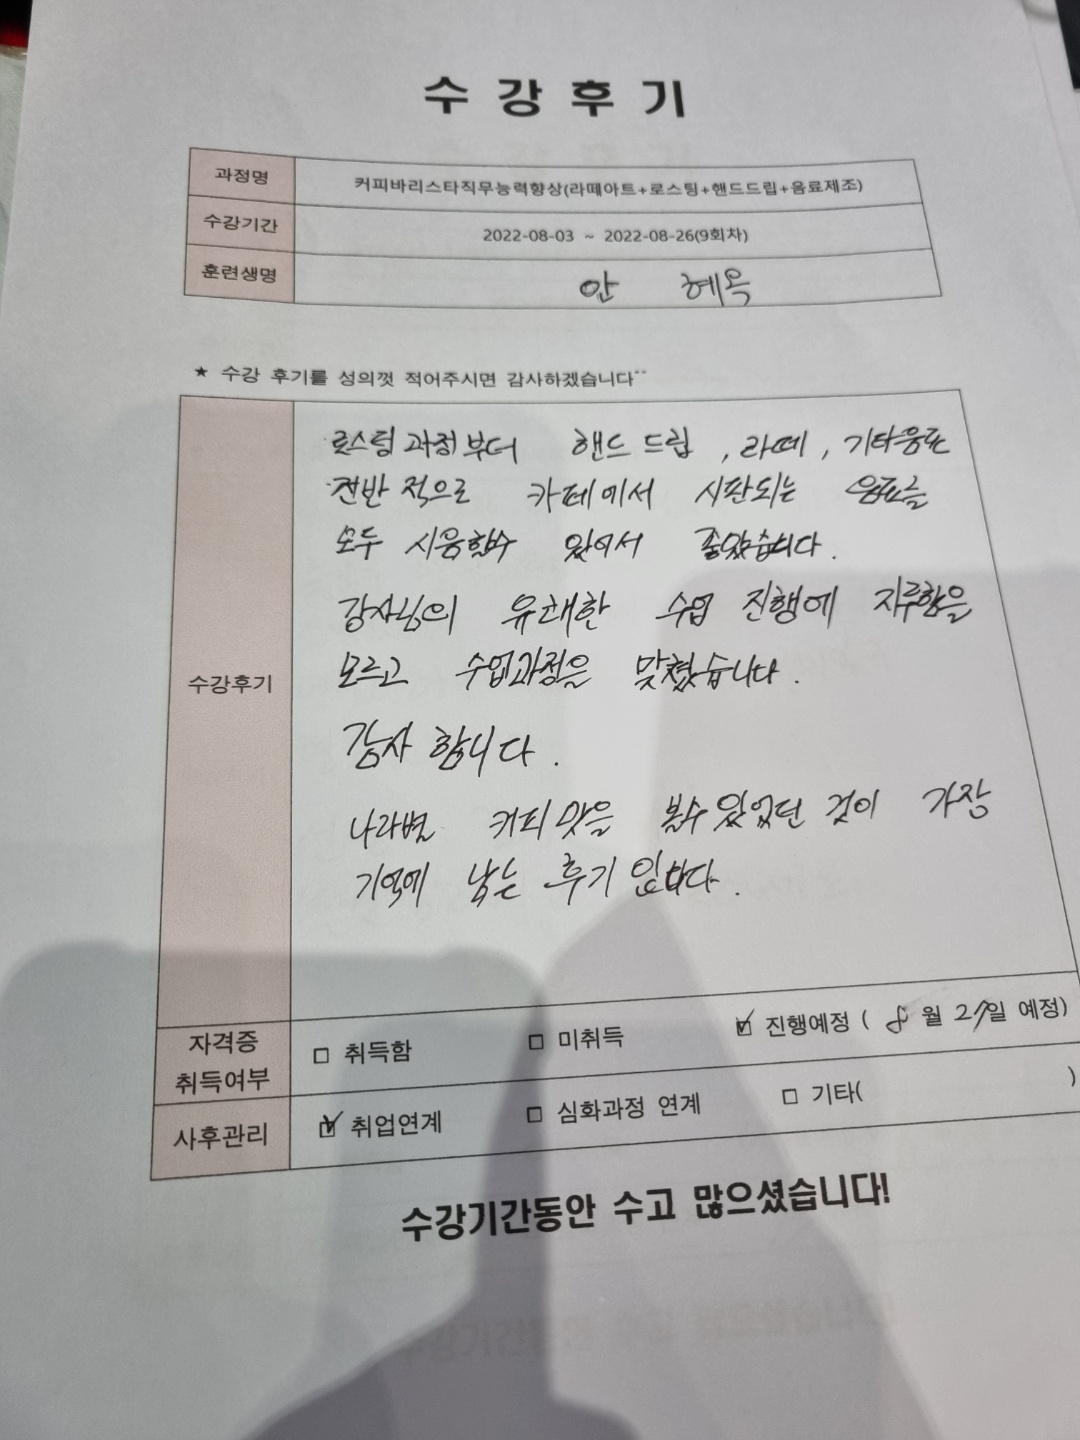 수 강 후 기
과정명 커피바리스타직무능력향상(라떼아트+로스팅+핸드드립+음료제조)
수강기간 2022-08-03 ~ 2022-08-26(9회차)
훈련생명 안 혜옥
★ 수강 후기를 성의껏 적어주시면 감사하겠습니다^^
수강후기
로스팅 과정부터 핸드 드립, 라떼, 기타음료
전반적으로 카페에서 시판되는 음료를
모두 시음할수 있어서 좋았습니다.
강사님의 유쾌한 수업 진행에 지루함을
모르고 수업과정을 맞쳤습니다.
감사 합니다.
나라별 커피맛을 볼수있었던 것이 가장
기억에 남는 후기 입니다.
자격증 취득여부 □ 취득함 □ 미취득 ☑ 진행예정 ( 8월 27일 예정)
사후관리 ☑ 취업연계 □ 심화과정 연계 □ 기타( )
수강기간동안 수고 많으셨습니다!